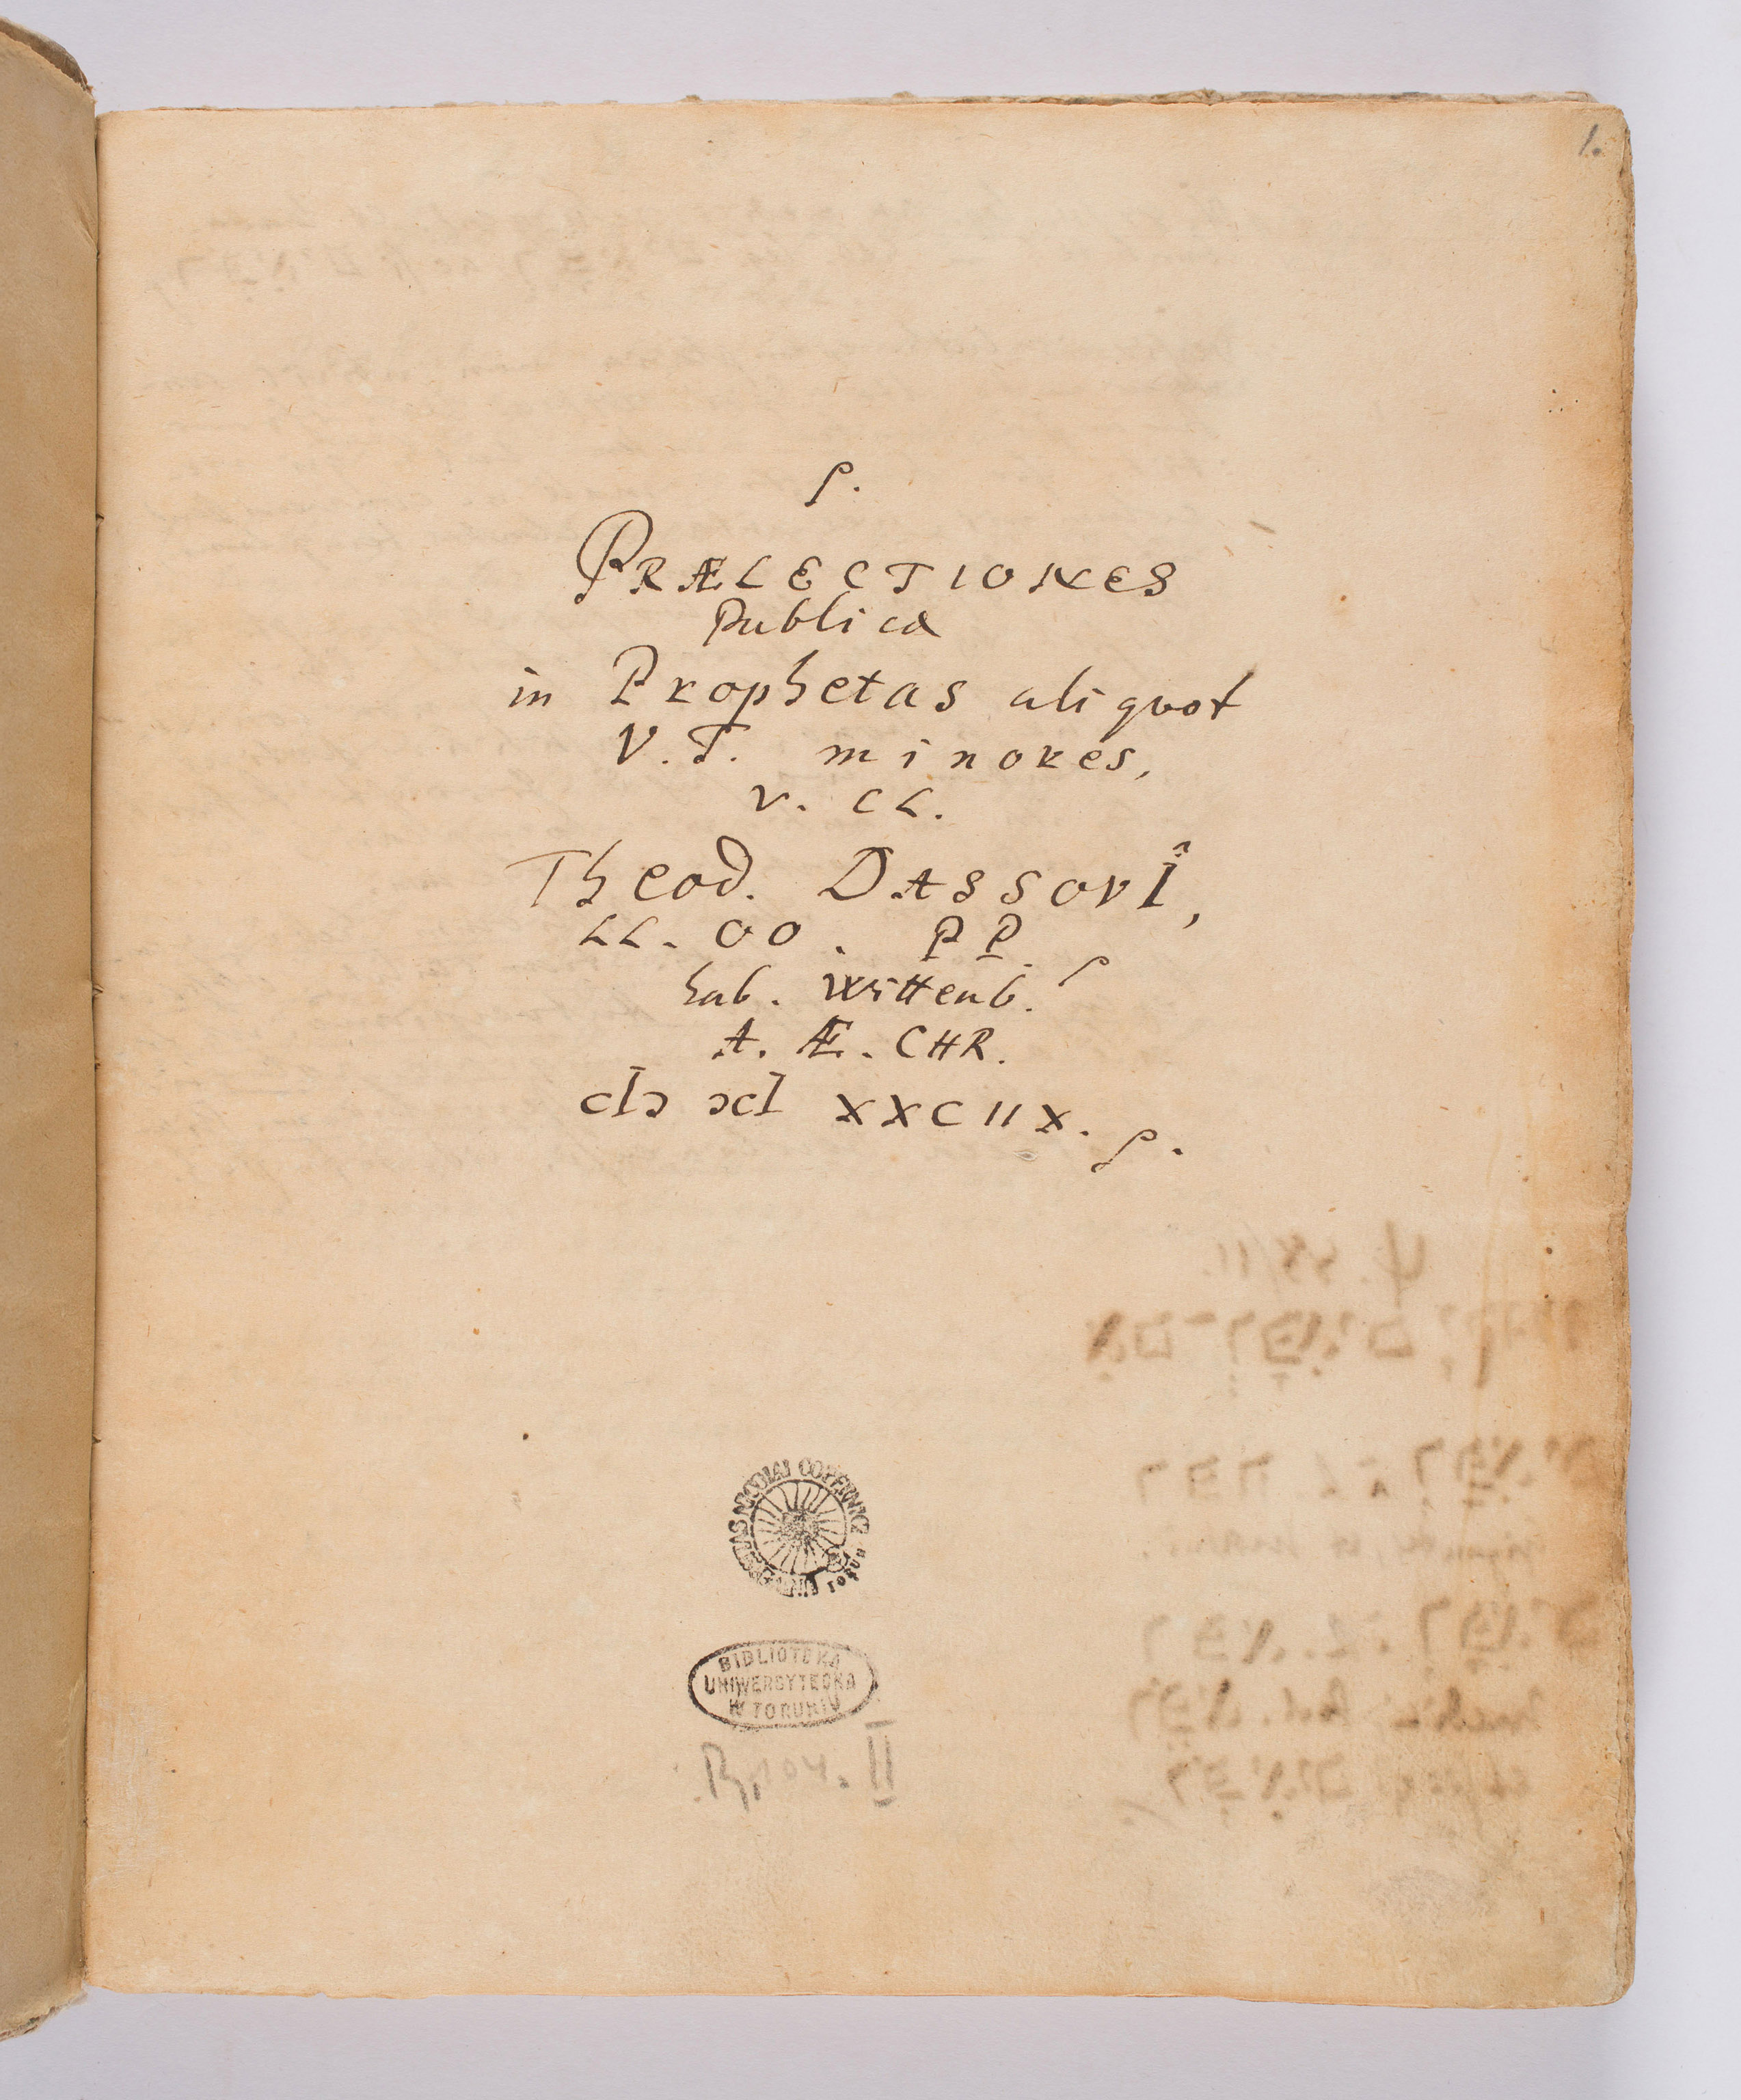 1.
PRÆLECTIONES
publicæ
in Prophetas aliquot
V. T. minores,
V. CL.
Theod. DASSOVI,
LL. OO. PP.
hab. Wittenb.
A. Æ. CHR.
cIɔ Iɔc XXCIIX.
UNIVERSITAS NICOLAI COPERNICI
TORUN
BIBLIOTEKA
UNIWERSYTECKA
W TORUNIU
II